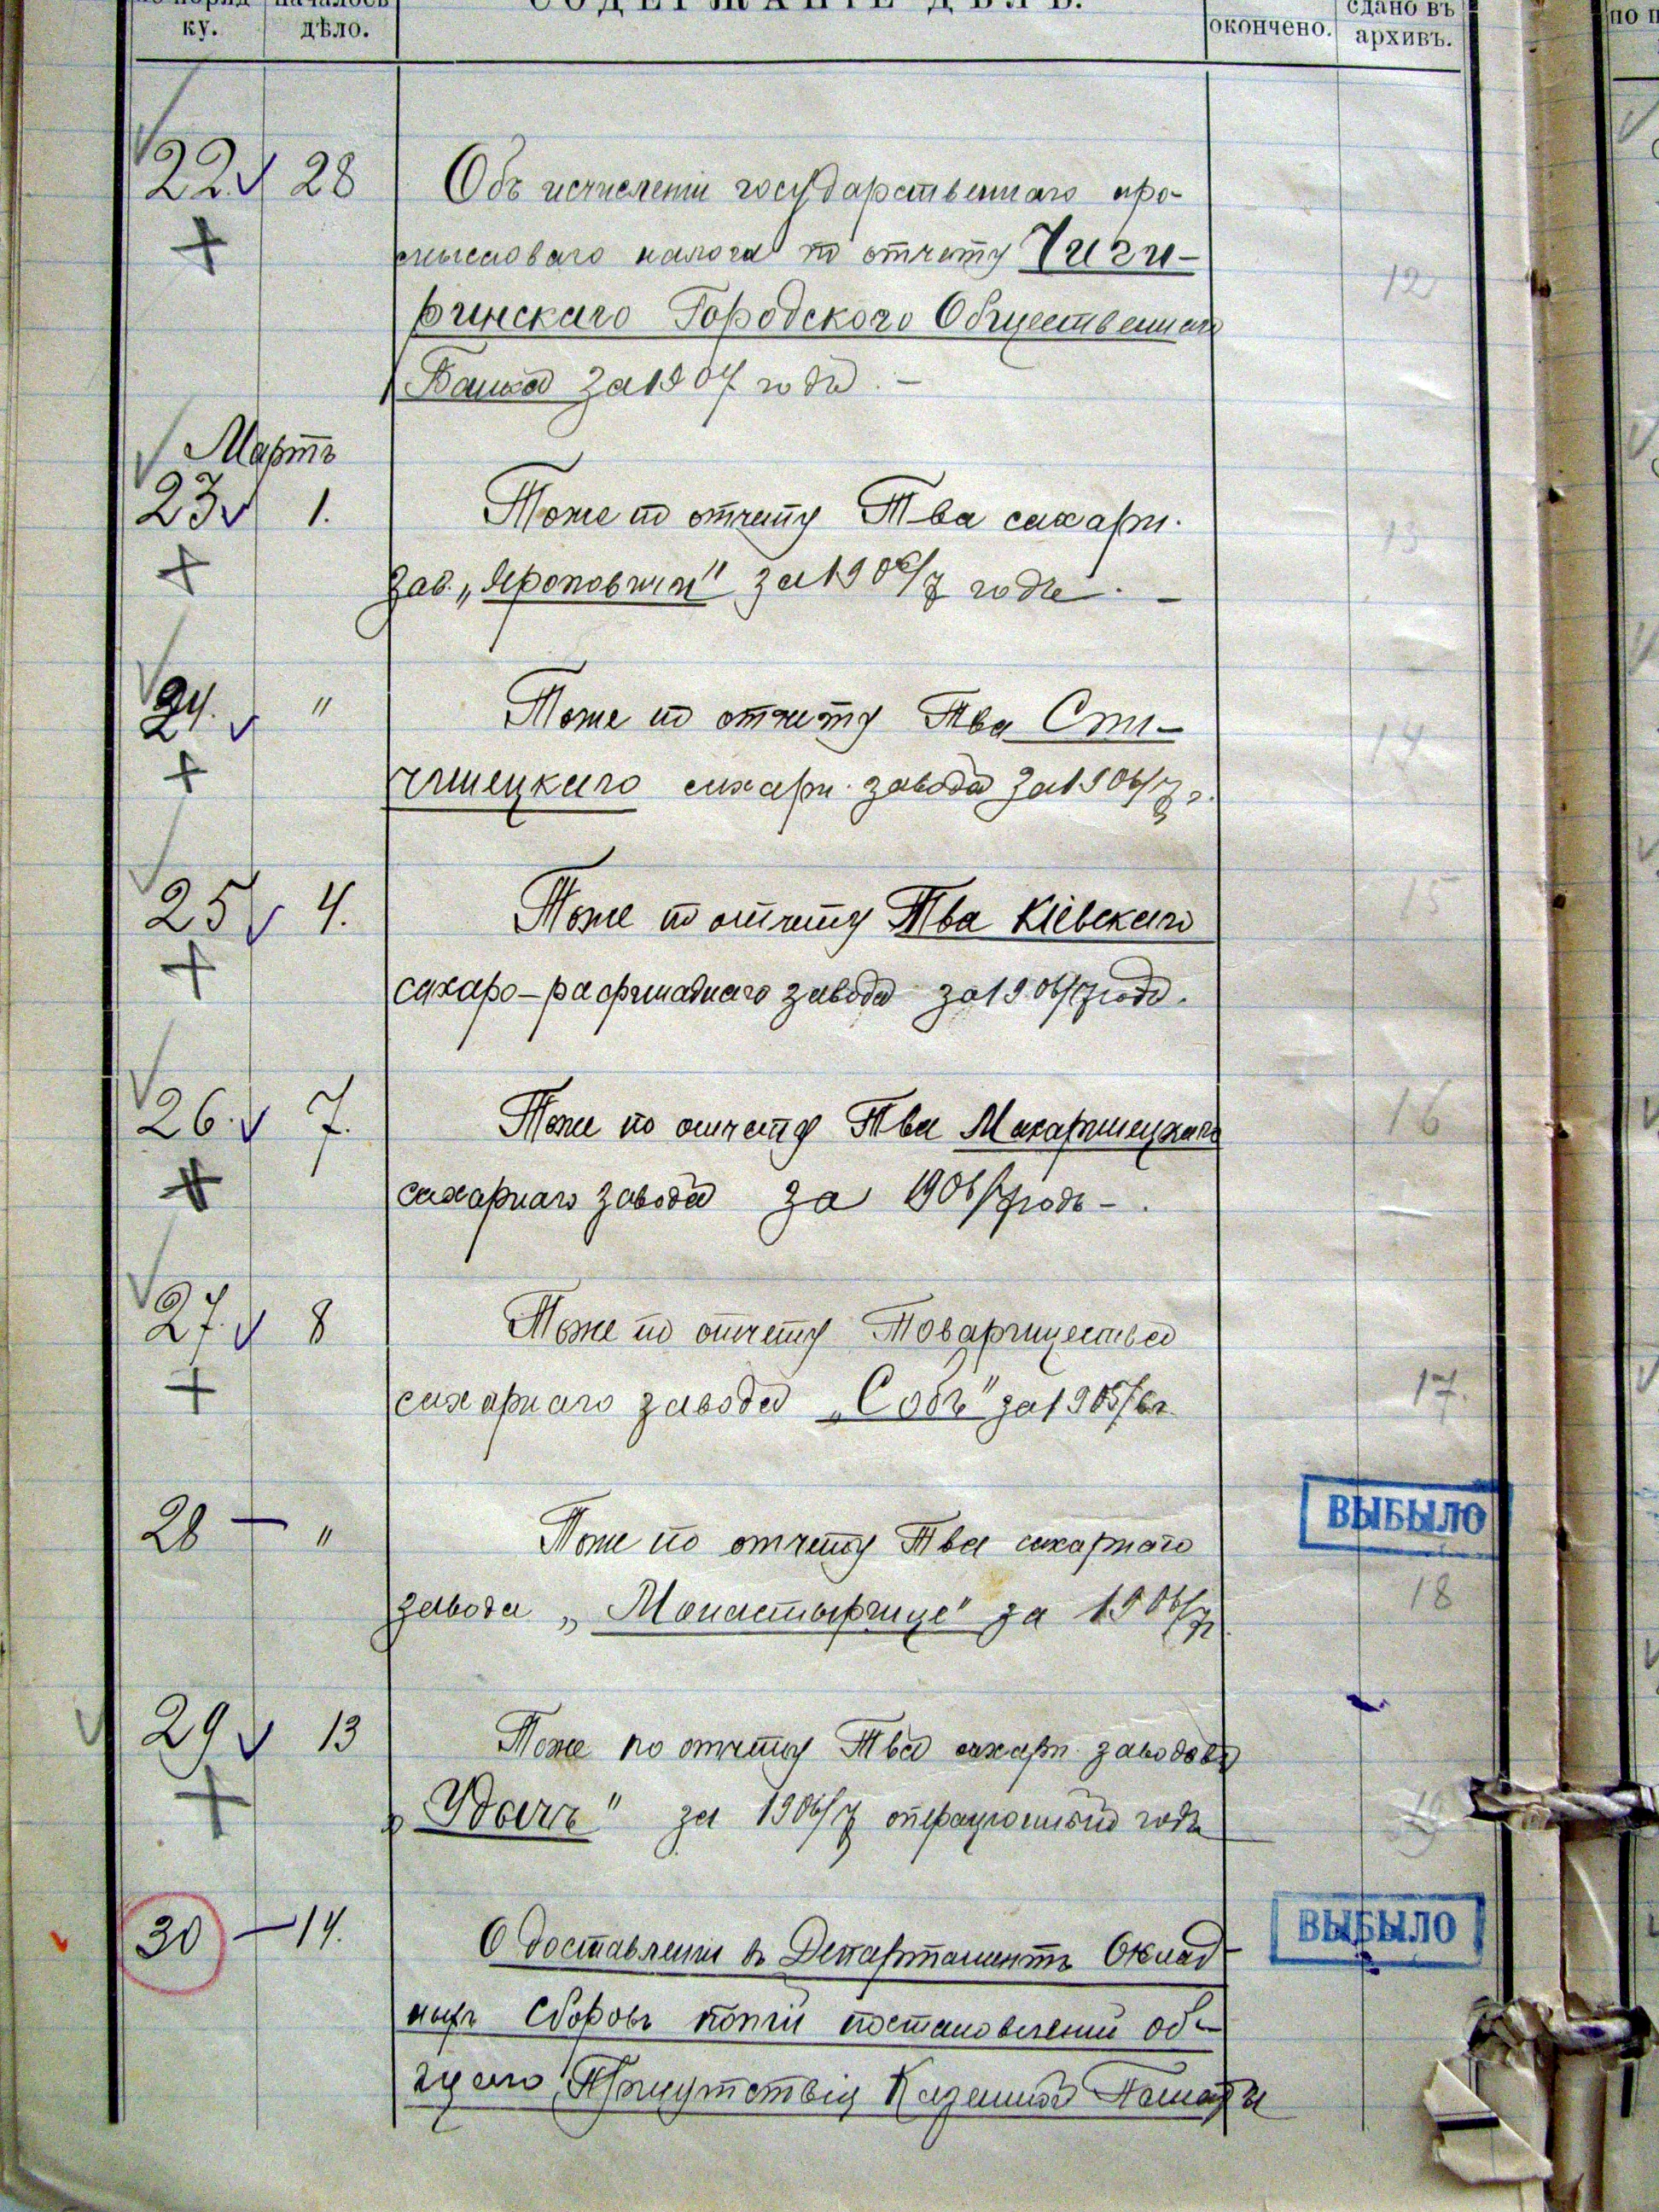 ку. дѣло. СОДЕРЖАНІЕ ДѢЛЪ. окончено. сдано въ
архивъ.
22. 28 Объ исчисленіи государственнаго про-
мысловаго налога по отчету Чиги-
ринскаго Городского Общественнаго
Банка за 1907 годъ. —
12
Мартъ
23 1. Тоже по отчету Тва сахарн.
зав. „Яроповичи" за 1906/7 годъ. —
13
24. " Тоже по отчету Тва Спи-
чинецкаго сахарн. завода за 1906/7 г.
14
25 4. Тоже по отчету Тва Кіевскаго
сахаро-рафинаднаго завода за 1906/7 годъ.
15
26. 7. Тоже по отчету Тва Макаринецкаго
сахарнаго завода за 1906/7 годъ —.
16
27. 8 Тоже по отчету Товарищества
сахарнаго завода „Собъ" за 1905/6 г.
17.
28 — " Тоже по отчету Тва сахарнаго
завода „Монастырище" за 1906/7 г.
ВЫБЫЛО
18
29 13 Тоже по отчету Тва сахарн. заводовъ
„Удачъ" за 1906/7 операціонный годъ
19
30 — 14. О доставленіи въ Департаментъ Оклад-
ныхъ Сборовъ копій постановленій об-
щаго Присутствія Казенной Палаты
ВЫБЫЛО